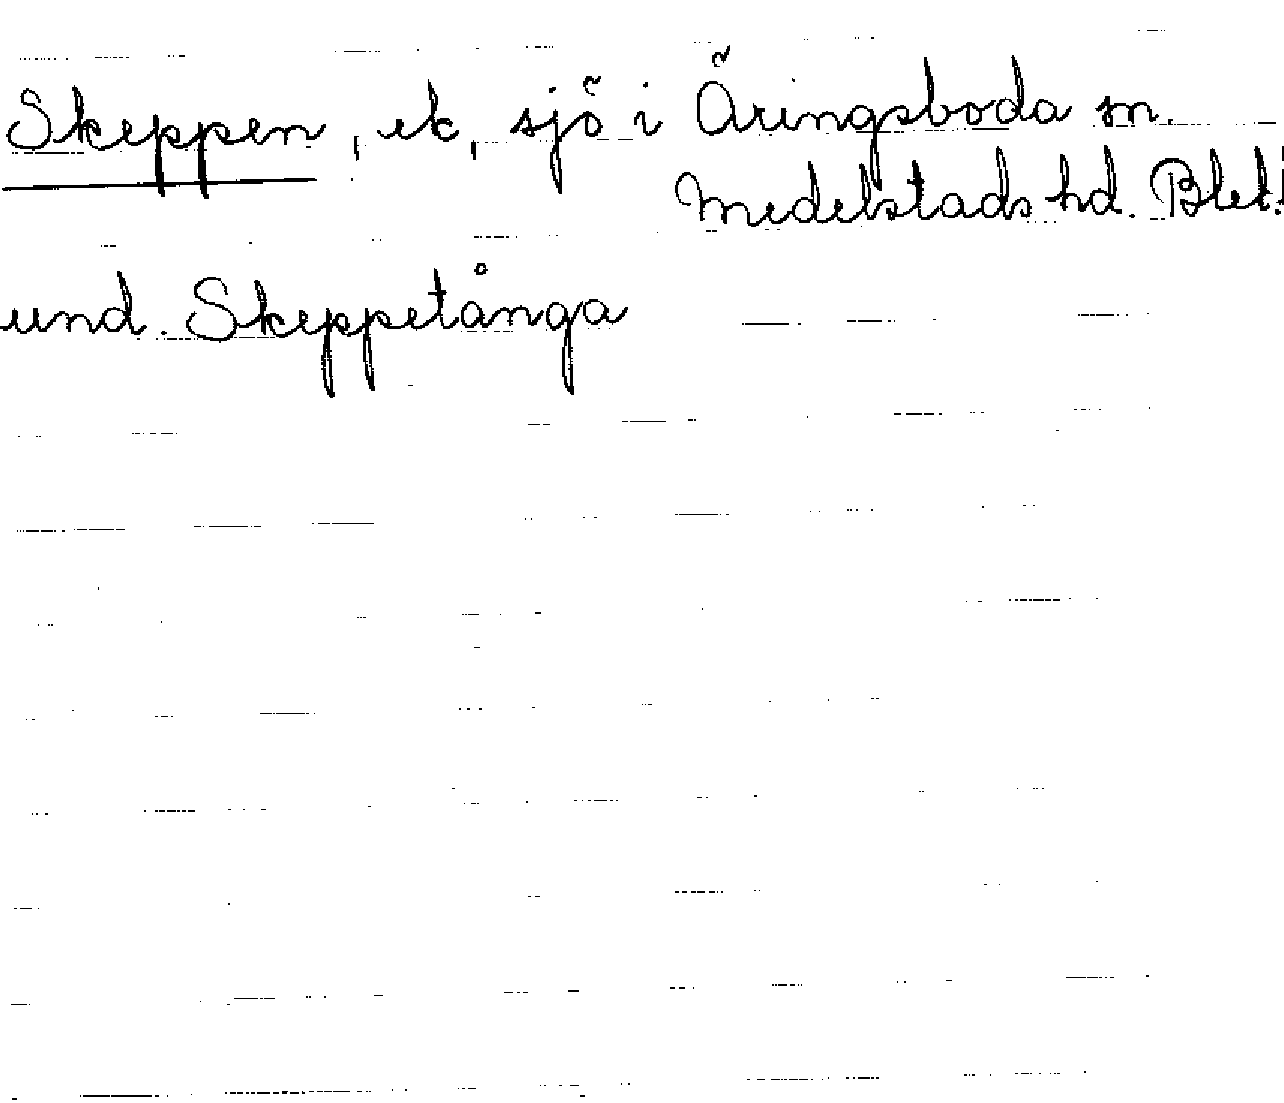 Skeppen, ek, sjö i Äringsboda sn.
Medelstads hd. Blek.
und. Skeppetånga